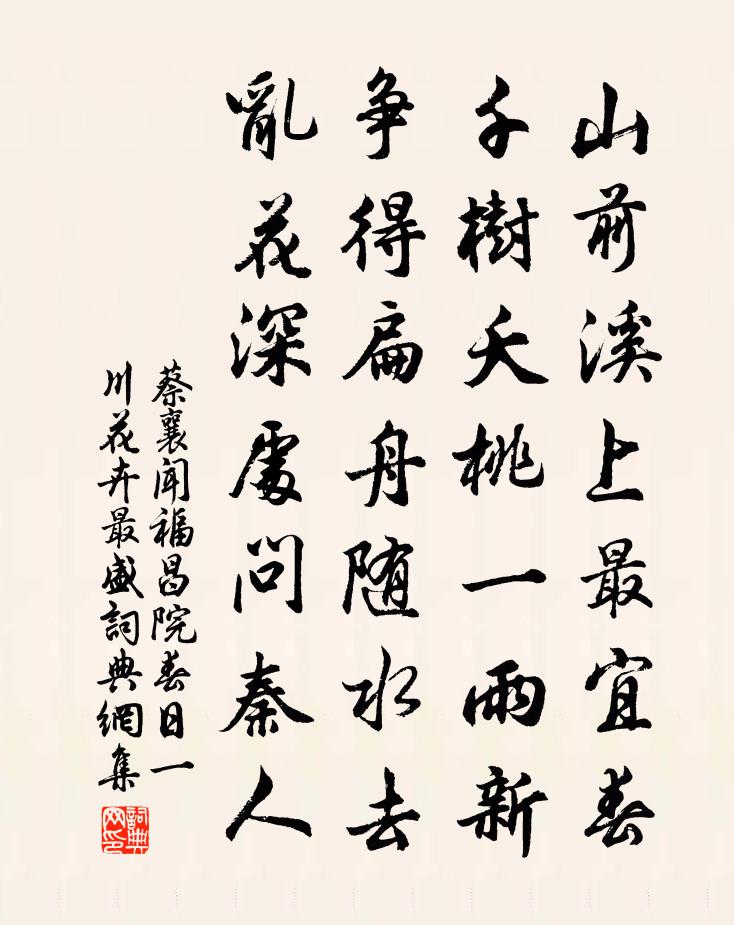 山前溪上最宜春
千樹夭桃一雨新
争得扁舟随水去
亂花深處問秦人
蔡襄聞福昌院春日一
川花卉最盛詞典網集
詞典
网印